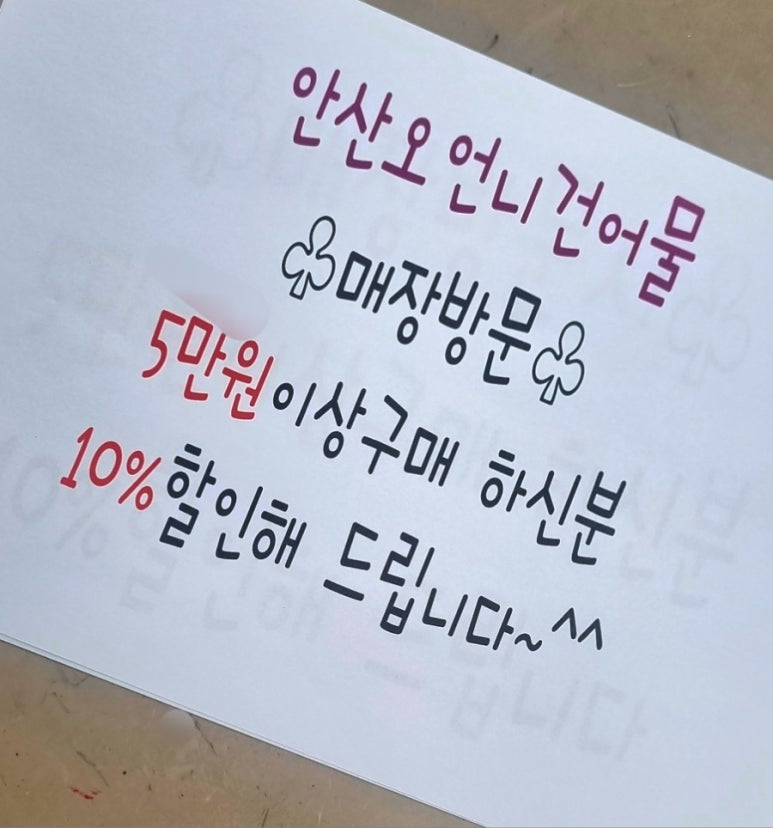 안산오 언니 건어물
♧매장방문♧
5만원이상구매 하신분
10%할인해 드립니다~^^